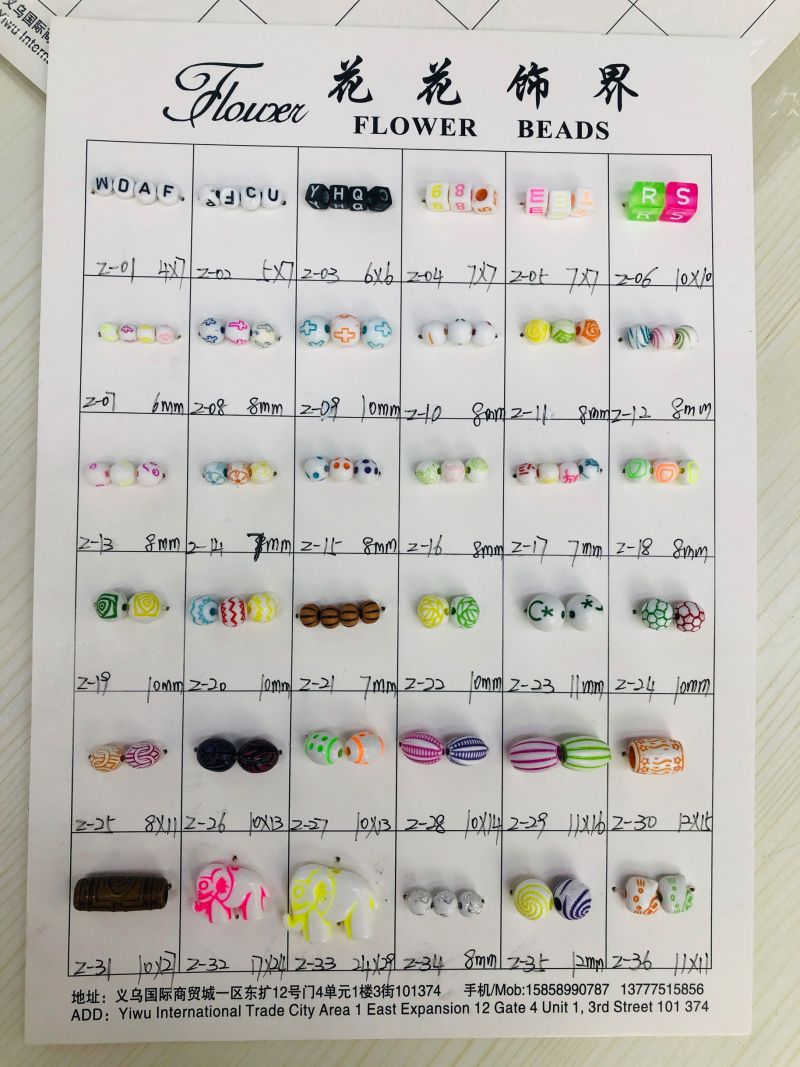 义乌国际商
Yiwu Intern
Flower 花花饰界
FLOWER BEADS
WDAF FCU YHQ 68 R S
Z-01 4X7 Z-02 5X7 Z-03 6X6 Z-04 7X7 Z-05 7X7 Z-06 10X10
Z-07 6mm Z-08 8mm Z-09 10mm Z-10 8mm Z-11 8mm Z-12 8mm
Z-13 8mm Z-14 8mm Z-15 8mm Z-16 8mm Z-17 7mm Z-18 8mm
Z-19 10mm Z-20 10mm Z-21 7mm Z-22 10mm Z-23 11mm Z-24 10mm
Z-25 8X11 Z-26 10X13 Z-27 10X13 Z-28 10X14 Z-29 11X16 Z-30 12X15
Z-31 10X27 Z-32 17X24 Z-33 24X29 Z-34 8mm Z-35 12mm Z-36 11X11
地址：义乌国际商贸城一区东扩12号门4单元1楼3街101374 手机/Mob:15858990787 13777515856
ADD: Yiwu International Trade City Area 1 East Expansion 12 Gate 4 Unit 1, 3rd Street 101 374